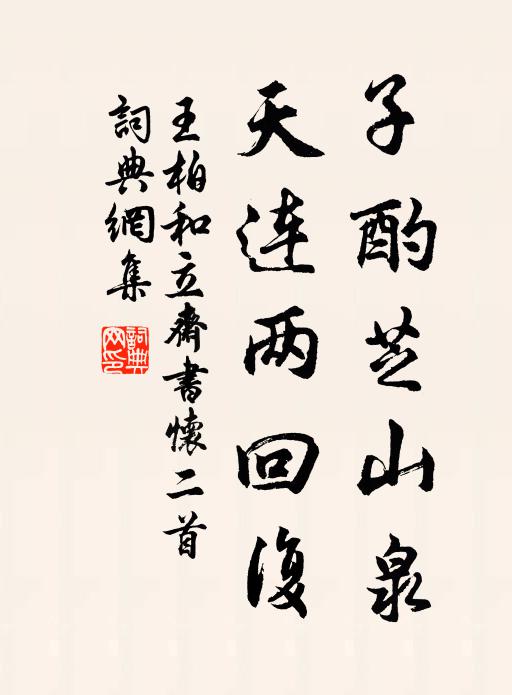 子酌芝山泉
天连两回復
王柏和立齋書懷二首
詞典網集
詞典网印